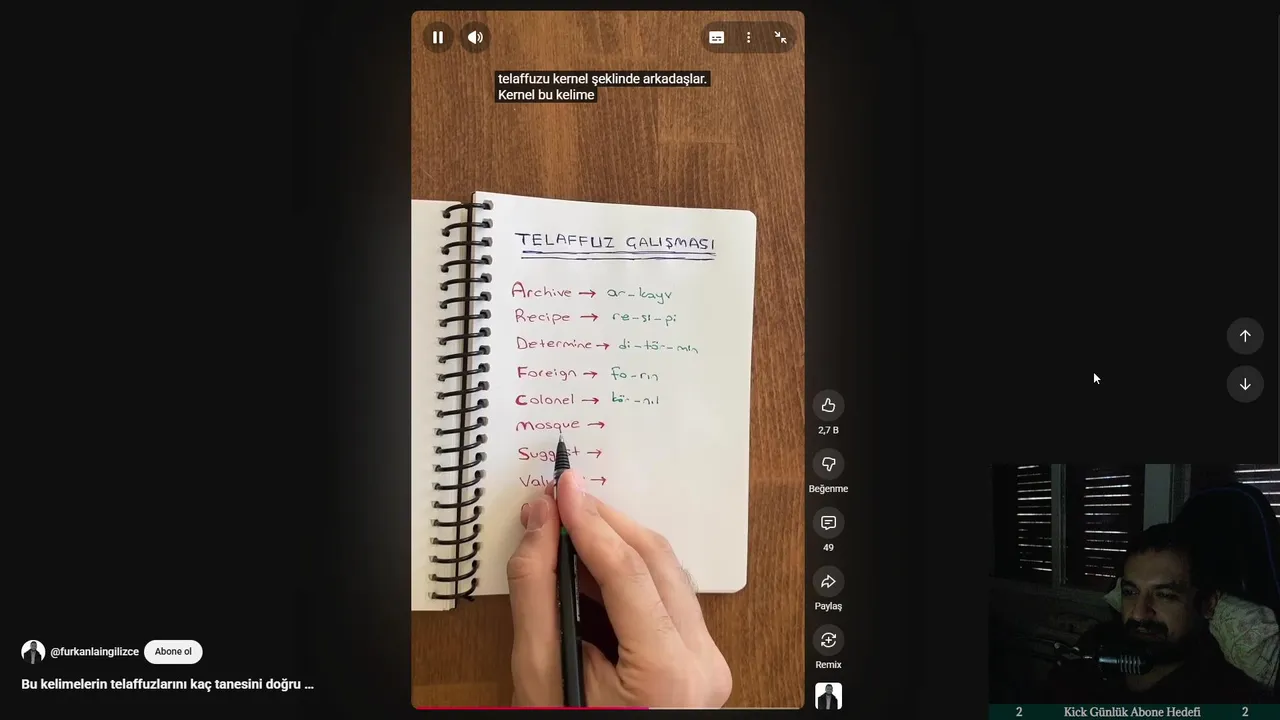 telaffuzu kernel şeklinde arkadaşlar.
Kernel bu kelime
TELAFFUZ ÇALIŞMASI
Archive → ar-kayv
Recipe → re-sı-pi
Determine → di-tör-mın
Foreign → fo-rın
Colonel → kör-nıl
Mosque →
→
→
2,7 B
Beğenme
49
Paylaş
Remix
@furkanlaingilizce
Abone ol
Bu kelimelerin telaffuzlarını kaç tanesini doğru ...
2 Kick Günlük Abone Hedefi 2